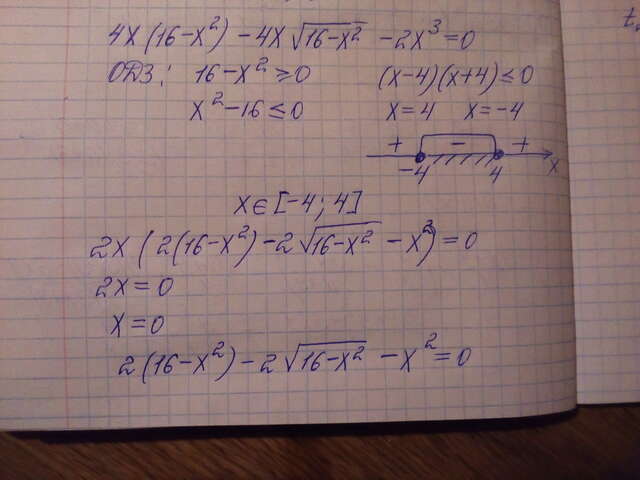 4x(16-x²) - 4x√(16-x²) - 2x³ = 0
ОДЗ: 16-x² ≥ 0 (x-4)(x+4) ≤ 0
x² - 16 ≤ 0 x = 4 x = -4
+ - +
-4 4 x
x ∈ [-4; 4]
2x(2(16-x²) - 2√(16-x²) - x²) = 0
2x = 0
x = 0
2(16-x²) - 2√(16-x²) - x² = 0